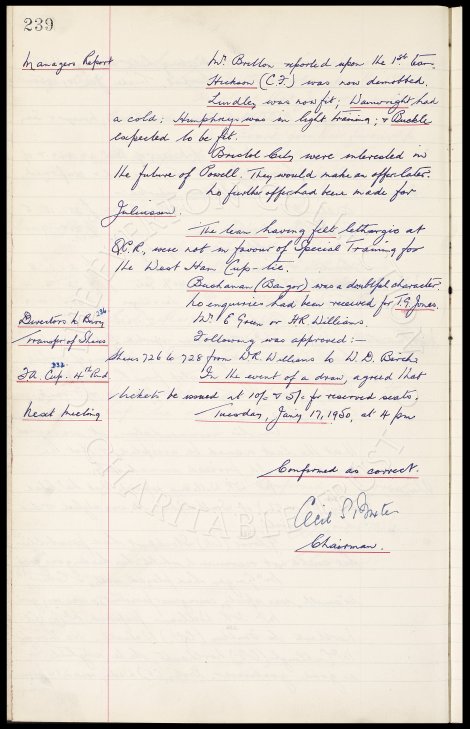 239
Managers Report
Mr Britton reported upon the 1st team.
Hickson (C.F.) was now demobbed.
Lindley was now fit; Wainwright had
a cold; Humphreys was in light training; & Buckle
expected to be fit.
Bristol City were interested in
the future of Powell. They would make an offer later.
No further offer had been made for
Juliussen.
The team having felt lethargic at
Q.P.R., were not in favour of Special Training for
the West Ham Cup-tie.
Buchanan (Bangor) was a doubtful character.
No enquiries had been received for T.G. Jones.
Directors to Bury 236
Mr E Green or WR Williams.
Transfer of Shares
Following was approved :-
Shares 726 to 728 from W.R. Williams to W. D. Birch.
F.A. Cup. 4th Rnd
In the event of a draw, agreed that
tickets be issued at 10/- & 5/- for reserved seats.
Next Meeting
Tuesday, Jany 17, 1950, at 4 pm
Confirmed as correct.
Cecil S. Baxter
Chairman.
EVERTON
CHARITABLE